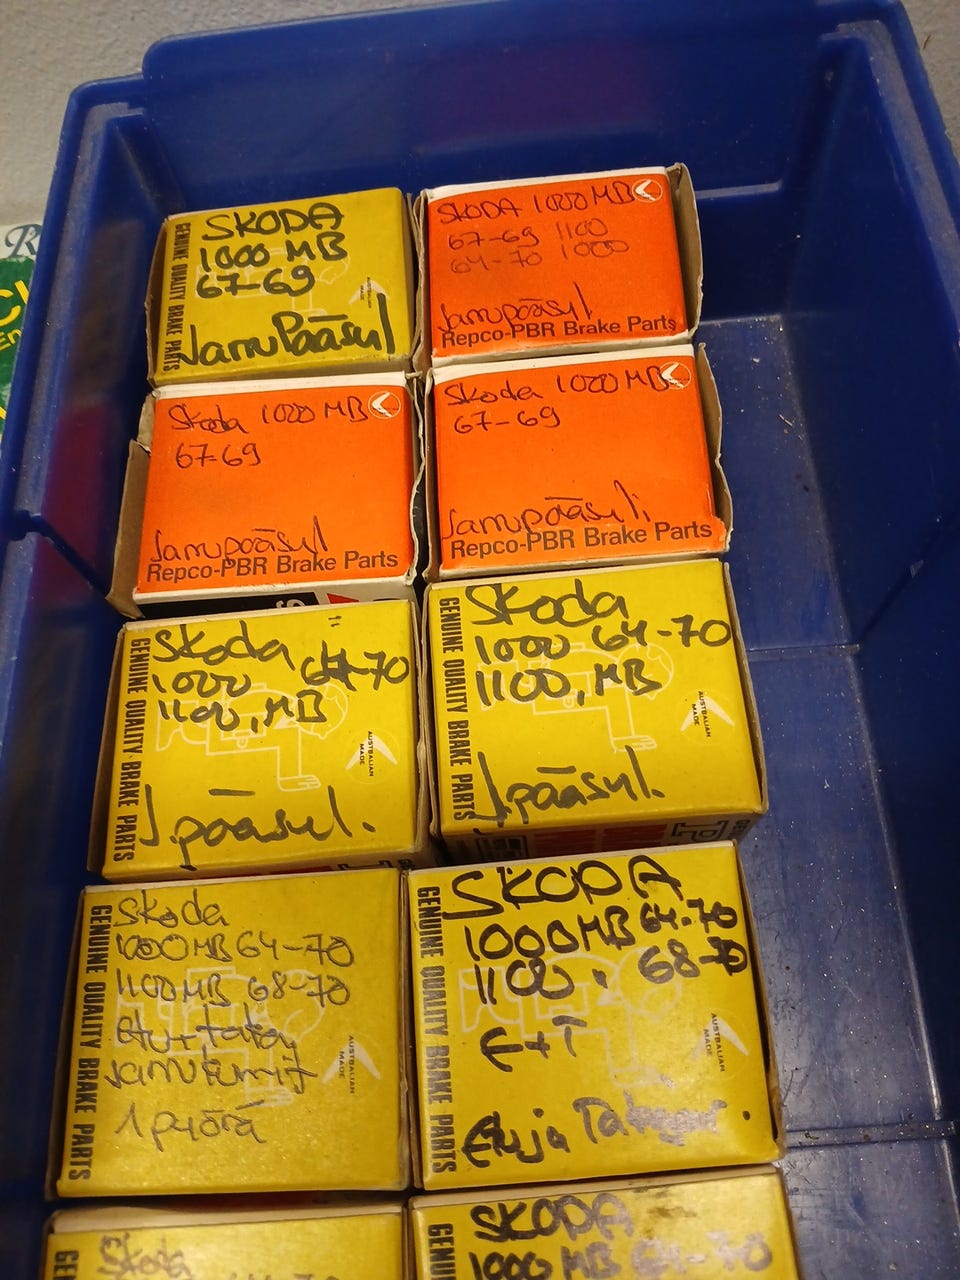 SKODA
1000 MB
67-69
JarruPääsyl
GENUINE QUALITY BRAKE PARTS
AUSTRALIAN
MADE
SKODA 1000 MB
67-69 1100
64-70 1000
Jarrupääsyl
Repco-PBR Brake Parts
Skoda 1000 MB
67-69
Jarrupääsyl
Repco-PBR Brake Parts
Skoda 1000 MB
67-69
Jarrupääsyl.
Repco-PBR Brake Parts
Skoda
1000 64-70
1100, MB
J.pääsyl.
GENUINE QUALITY BRAKE PARTS
AUSTRALIAN
MADE
Skoda
1000 64-70
1100, MB
J.pääsyl.
GENUINE QUALITY BRAKE PARTS
AUSTRALIAN
MADE
Skoda
1000MB 64-70
1100MB 68-70
etu+taka
jarrukumit
1 pyörä
GENUINE QUALITY BRAKE PARTS
AUSTRALIAN
MADE
SKODA
1000MB 64-70
1100 68-70
E+T
Etu ja
GENUINE QUALITY BRAKE PARTS
AUSTRALIAN
MADE
Skoda
SKODA
1000 MB 64-70